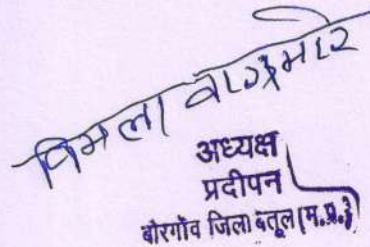 विमला वाघमारे
अध्यक्ष
प्रदीपन
बोरगाँव जिला बैतूल (म.प्र.)